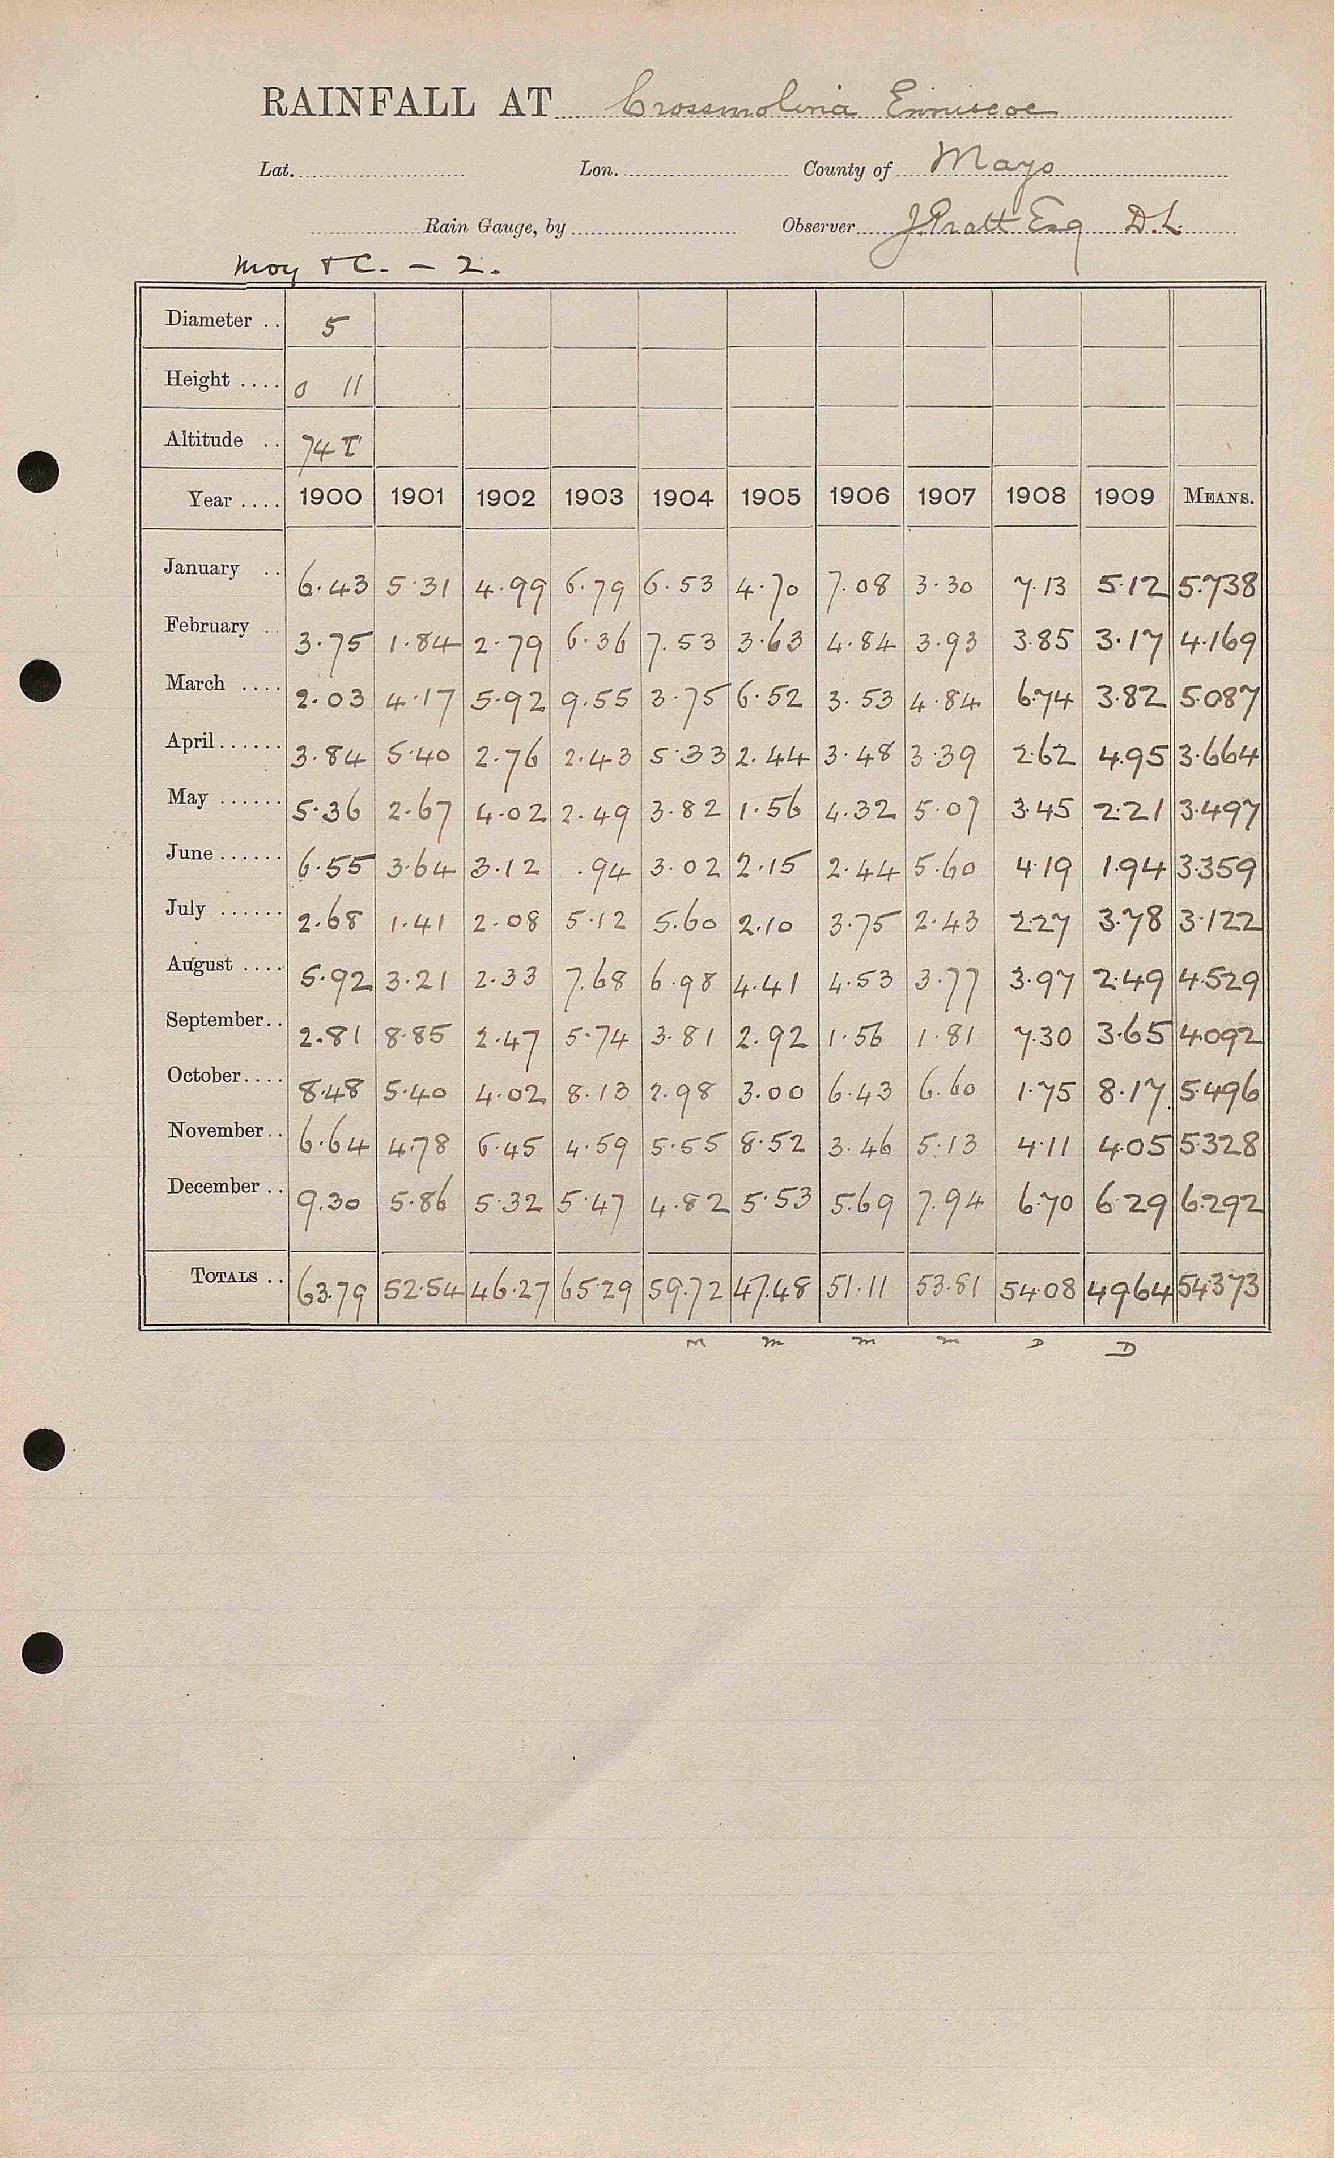 RAINFALL AT Crossmolina Enniscoe
Lat. Lon. County of Mayo
Rain Gauge, by Observer J. Pratt Esq D.L.
Moy & C. - 2.
Diameter .. 5
Height .... 0 11
Altitude .. 74 T
Year .... 1900 1901 1902 1903 1904 1905 1906 1907 1908 1909 MEANS.
January .. 6.43 5.31 4.99 6.79 6.53 4.70 7.08 3.30 7.13 5.12 5.738
February .. 3.75 1.84 2.79 6.36 7.53 3.63 4.84 3.93 3.85 3.17 4.169
March .... 2.03 4.17 5.92 9.55 3.75 6.52 3.53 4.84 6.74 3.82 5.087
April ...... 3.84 5.40 2.76 2.43 5.33 2.44 3.48 3.39 2.62 4.95 3.664
May ...... 5.36 2.67 4.02 2.49 3.82 1.56 4.32 5.07 3.45 2.21 3.497
June ...... 6.55 3.64 3.12 .94 3.02 2.15 2.44 5.60 4.19 1.94 3.359
July ...... 2.68 1.41 2.08 5.12 5.60 2.10 3.75 2.43 2.27 3.78 3.122
August .... 5.92 3.21 2.33 7.68 6.98 4.41 4.53 3.77 3.97 2.49 4.529
September .. 2.81 8.85 2.47 5.74 3.81 2.92 1.56 1.81 7.30 3.65 4.092
October .... 8.48 5.40 4.02 8.13 2.98 3.00 6.43 6.60 1.75 8.17 5.496
November .. 6.64 4.78 6.45 4.59 5.55 8.52 3.46 5.13 4.11 4.05 5.328
December .. 9.30 5.86 5.32 5.47 4.82 5.53 5.69 7.94 6.70 6.29 6.292
TOTALS .. 63.79 52.54 46.27 65.29 59.72 47.48 51.11 53.81 54.08 49.64 54.373
M M M M D D